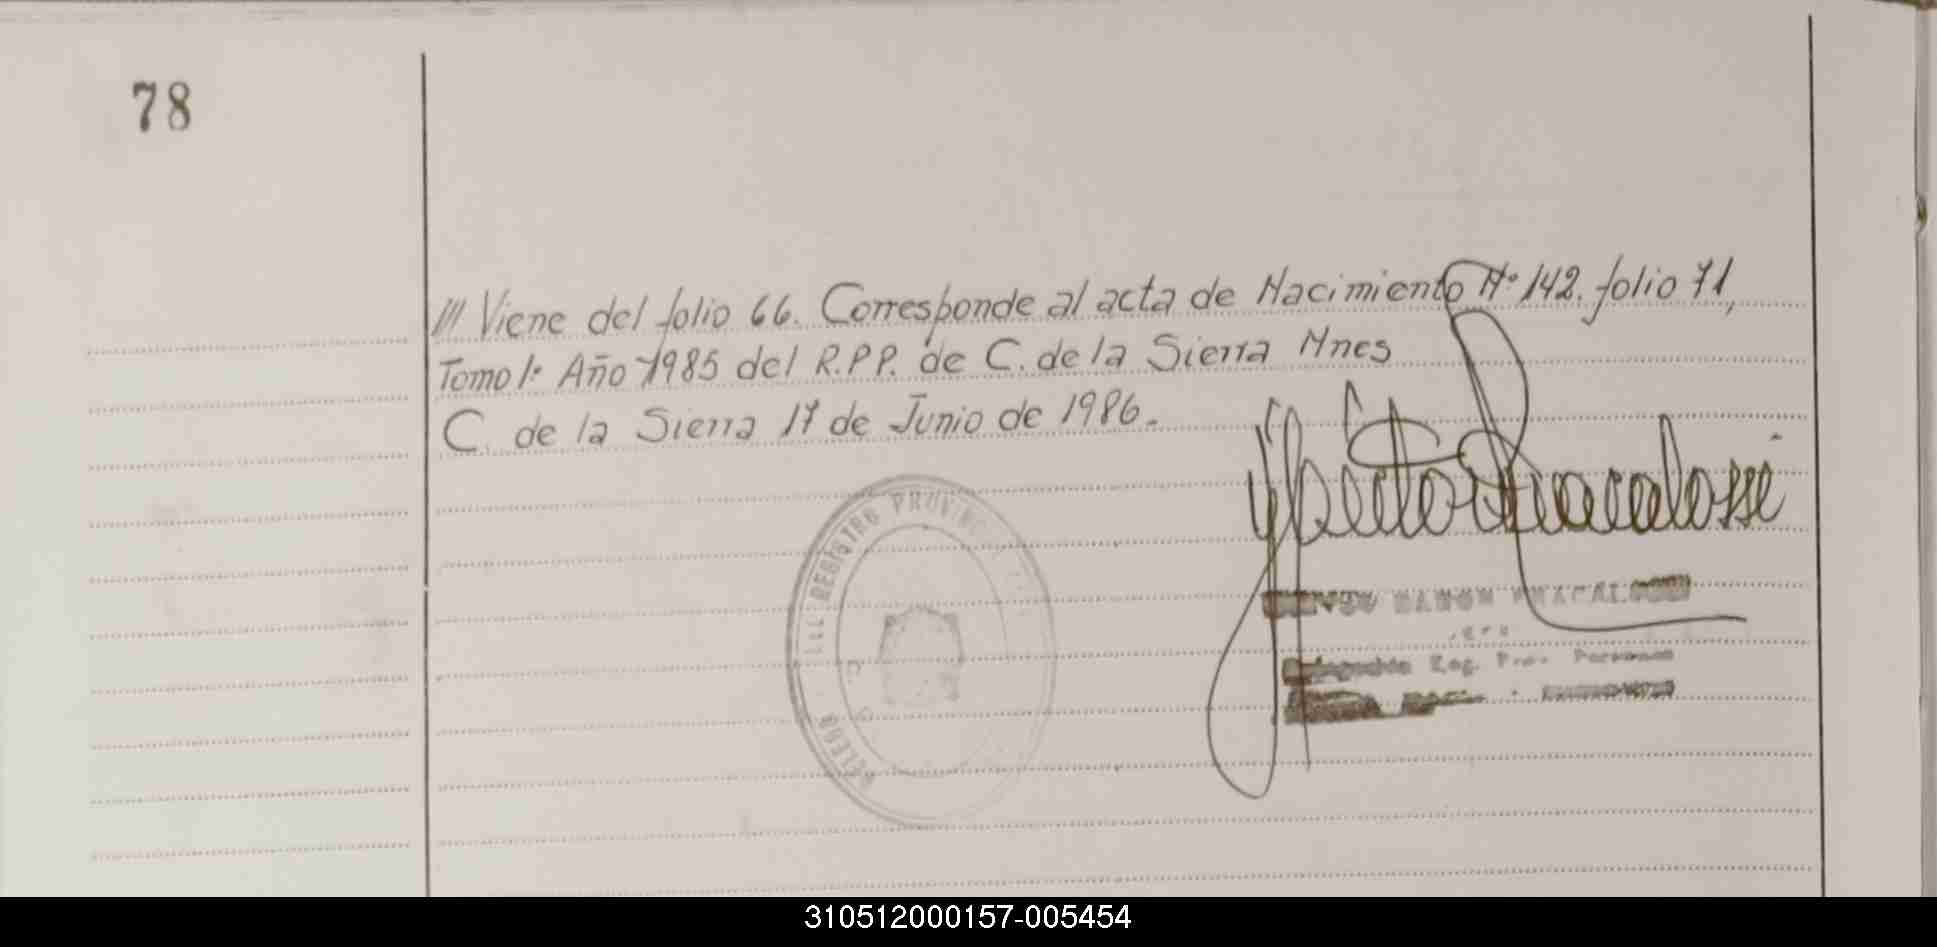 78
/// Viene del folio 66. Corresponde al acta de Nacimiento Nº 142. folio 71,
Tomo 1º Año 1985 del R.P.P. de C. de la Sierra Mnes
C. de la Sierra 17 de Junio de 1986.
REGISTRO PROVINC
RAMON
Reg. Prov. Personas
310512000157-005454